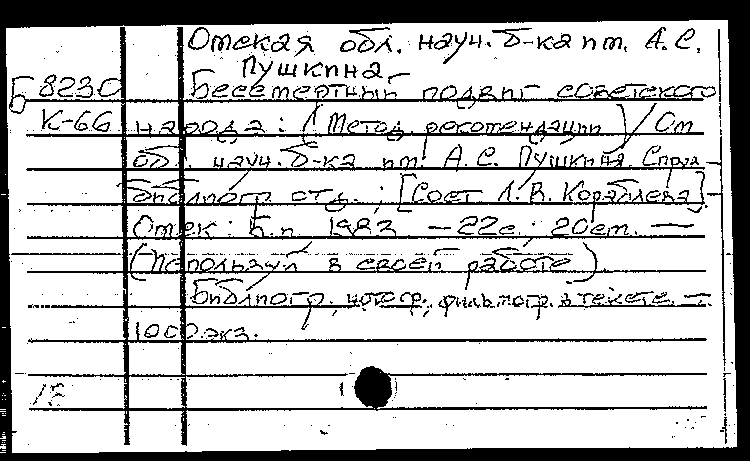 Омская обл. науч. б-ка им. А. С.
Пушкина
Б 8230 Бессмертный подвиг советского
К-66 народа: (Метод. рекомендации) / Ом
обл. науч. б-ка им. А. С. Пушкина. Справ-
библиогр. отд.; [Сост. Л. В. Кораблева].-
Омск: Б. и. 1983 - 22 с.; 20 см. —
(Используй в своей работе).
Библиогр., нотогр., фильмогр. в тексте. —
1000 экз.